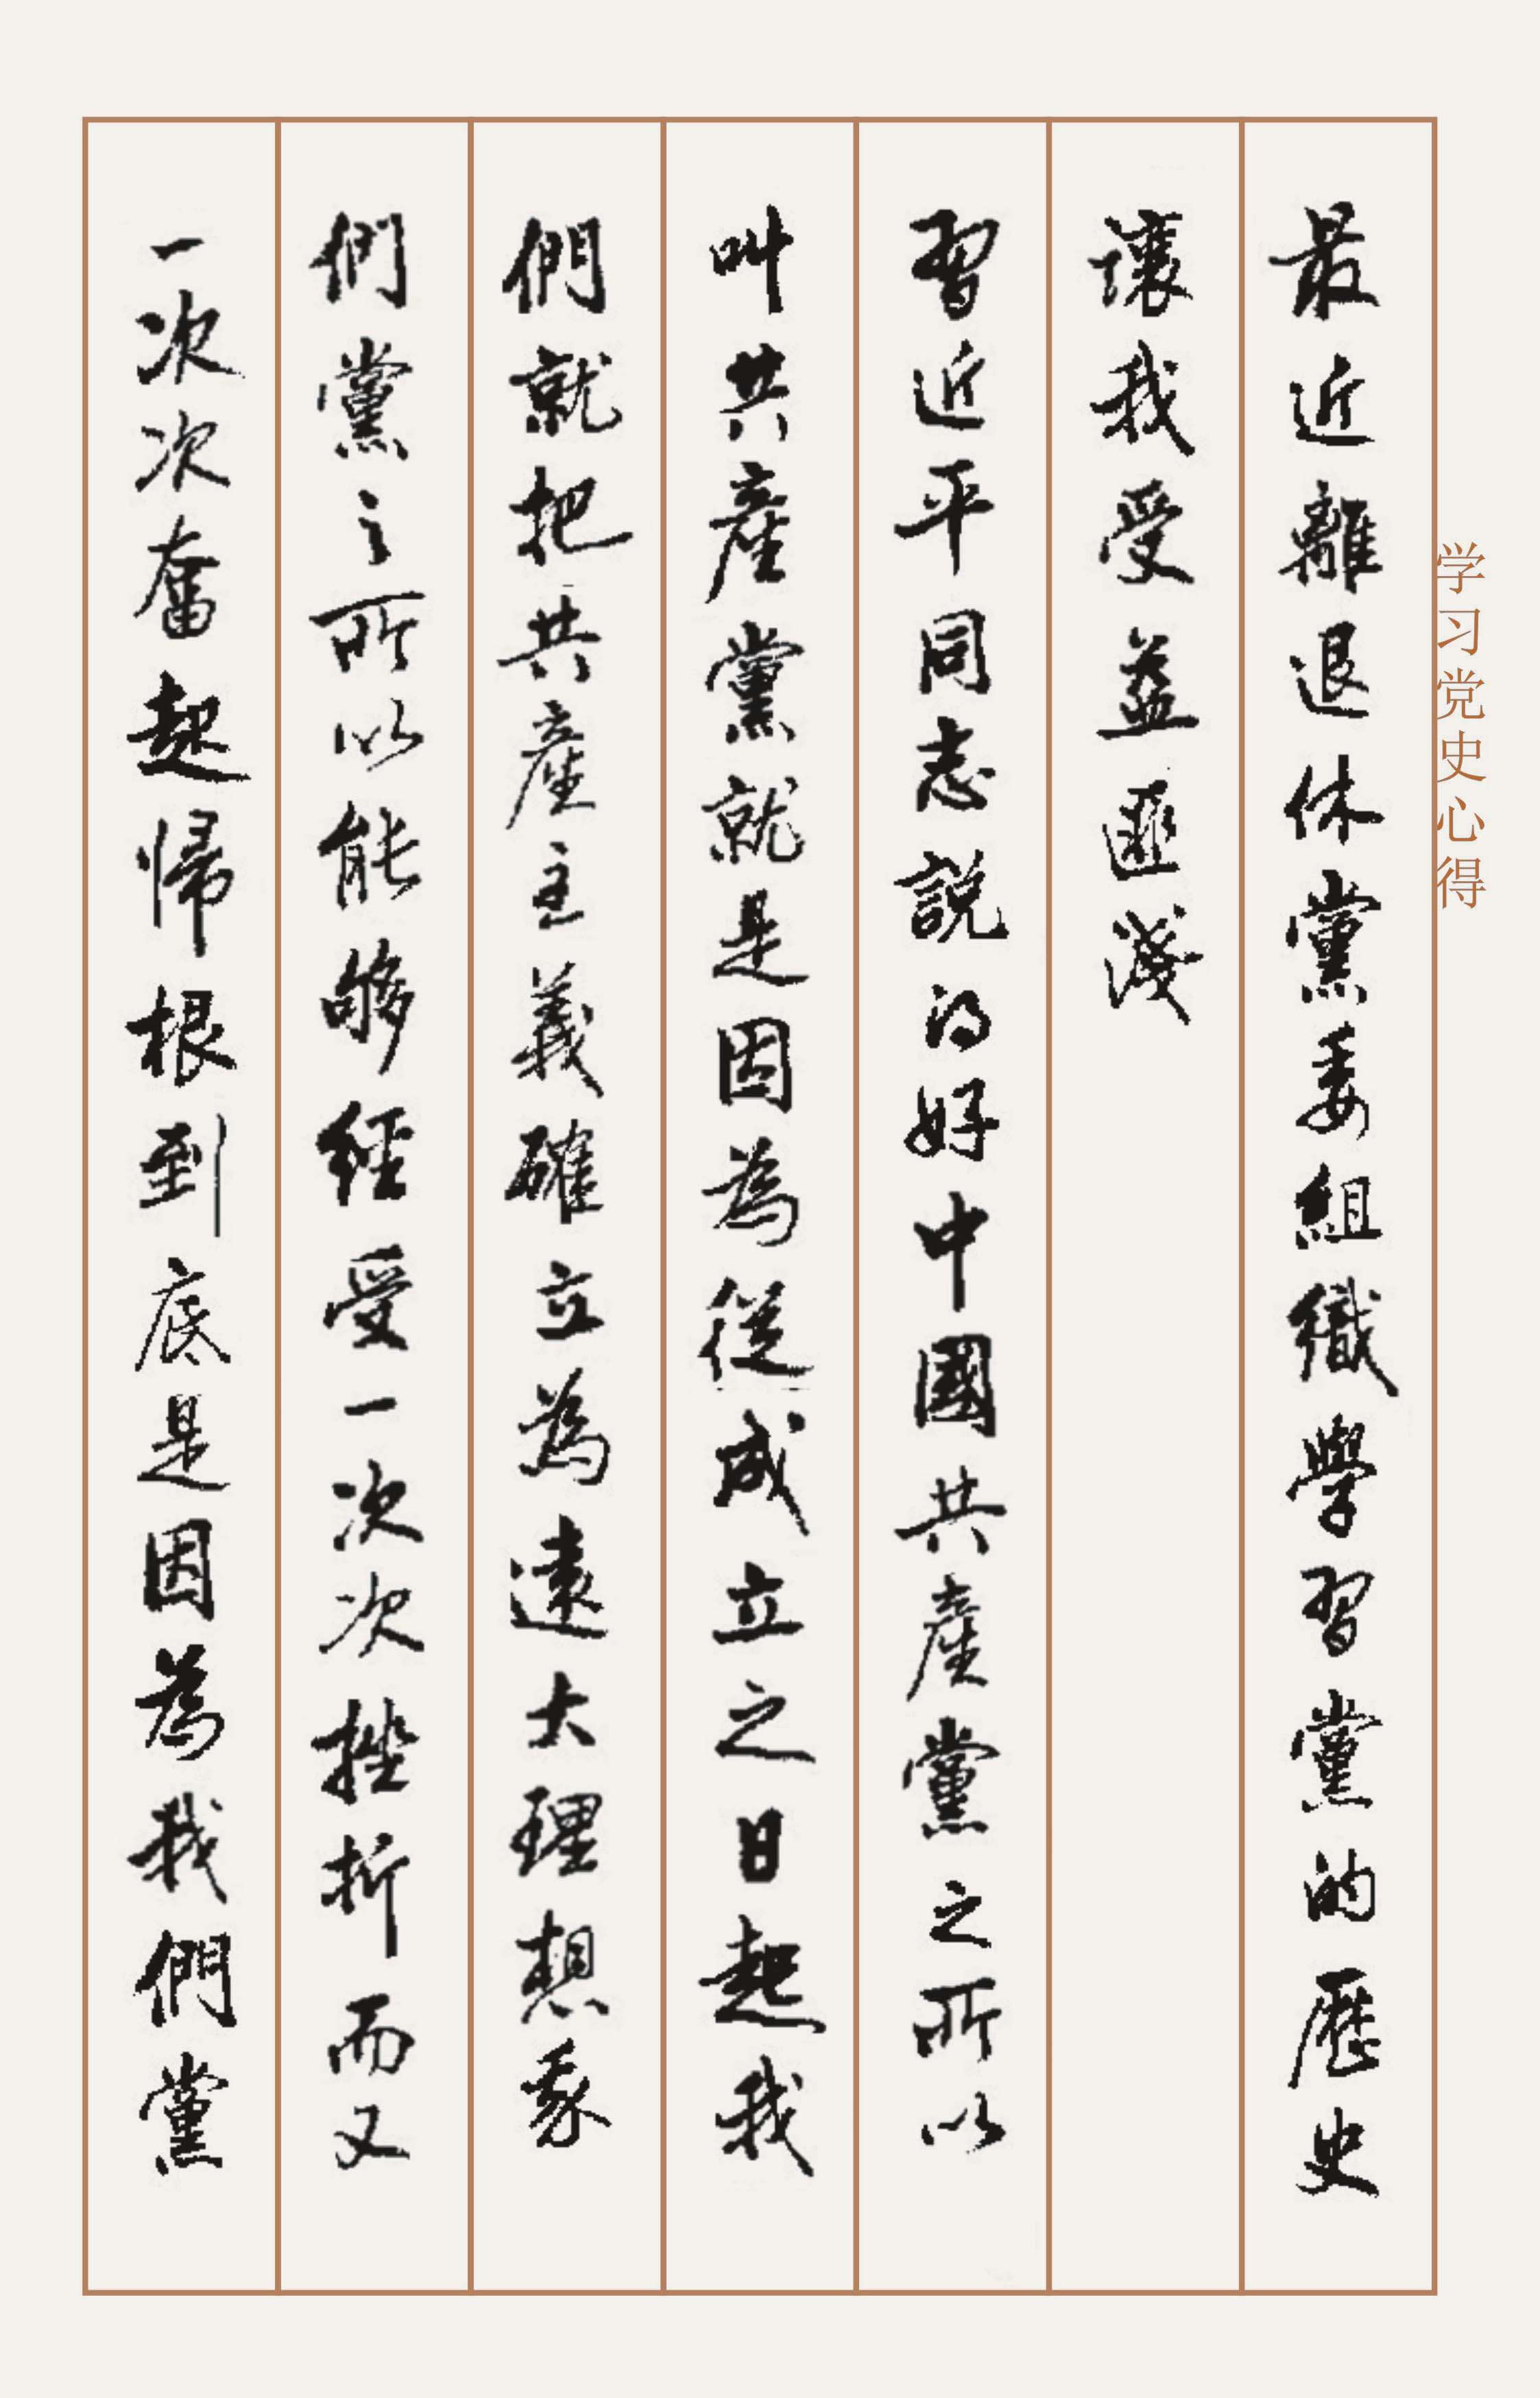 学习党史心得
最近離退休黨委組織學習黨的歷史
讓我受益匪淺
習近平同志説的好中國共產黨之所以
叫共產黨就是因為從成立之日起我
們就把共產主義確立為遠大理想我
們黨之所以能够經受一次次挫折而又
一次次奮起歸根到底是因為我們黨